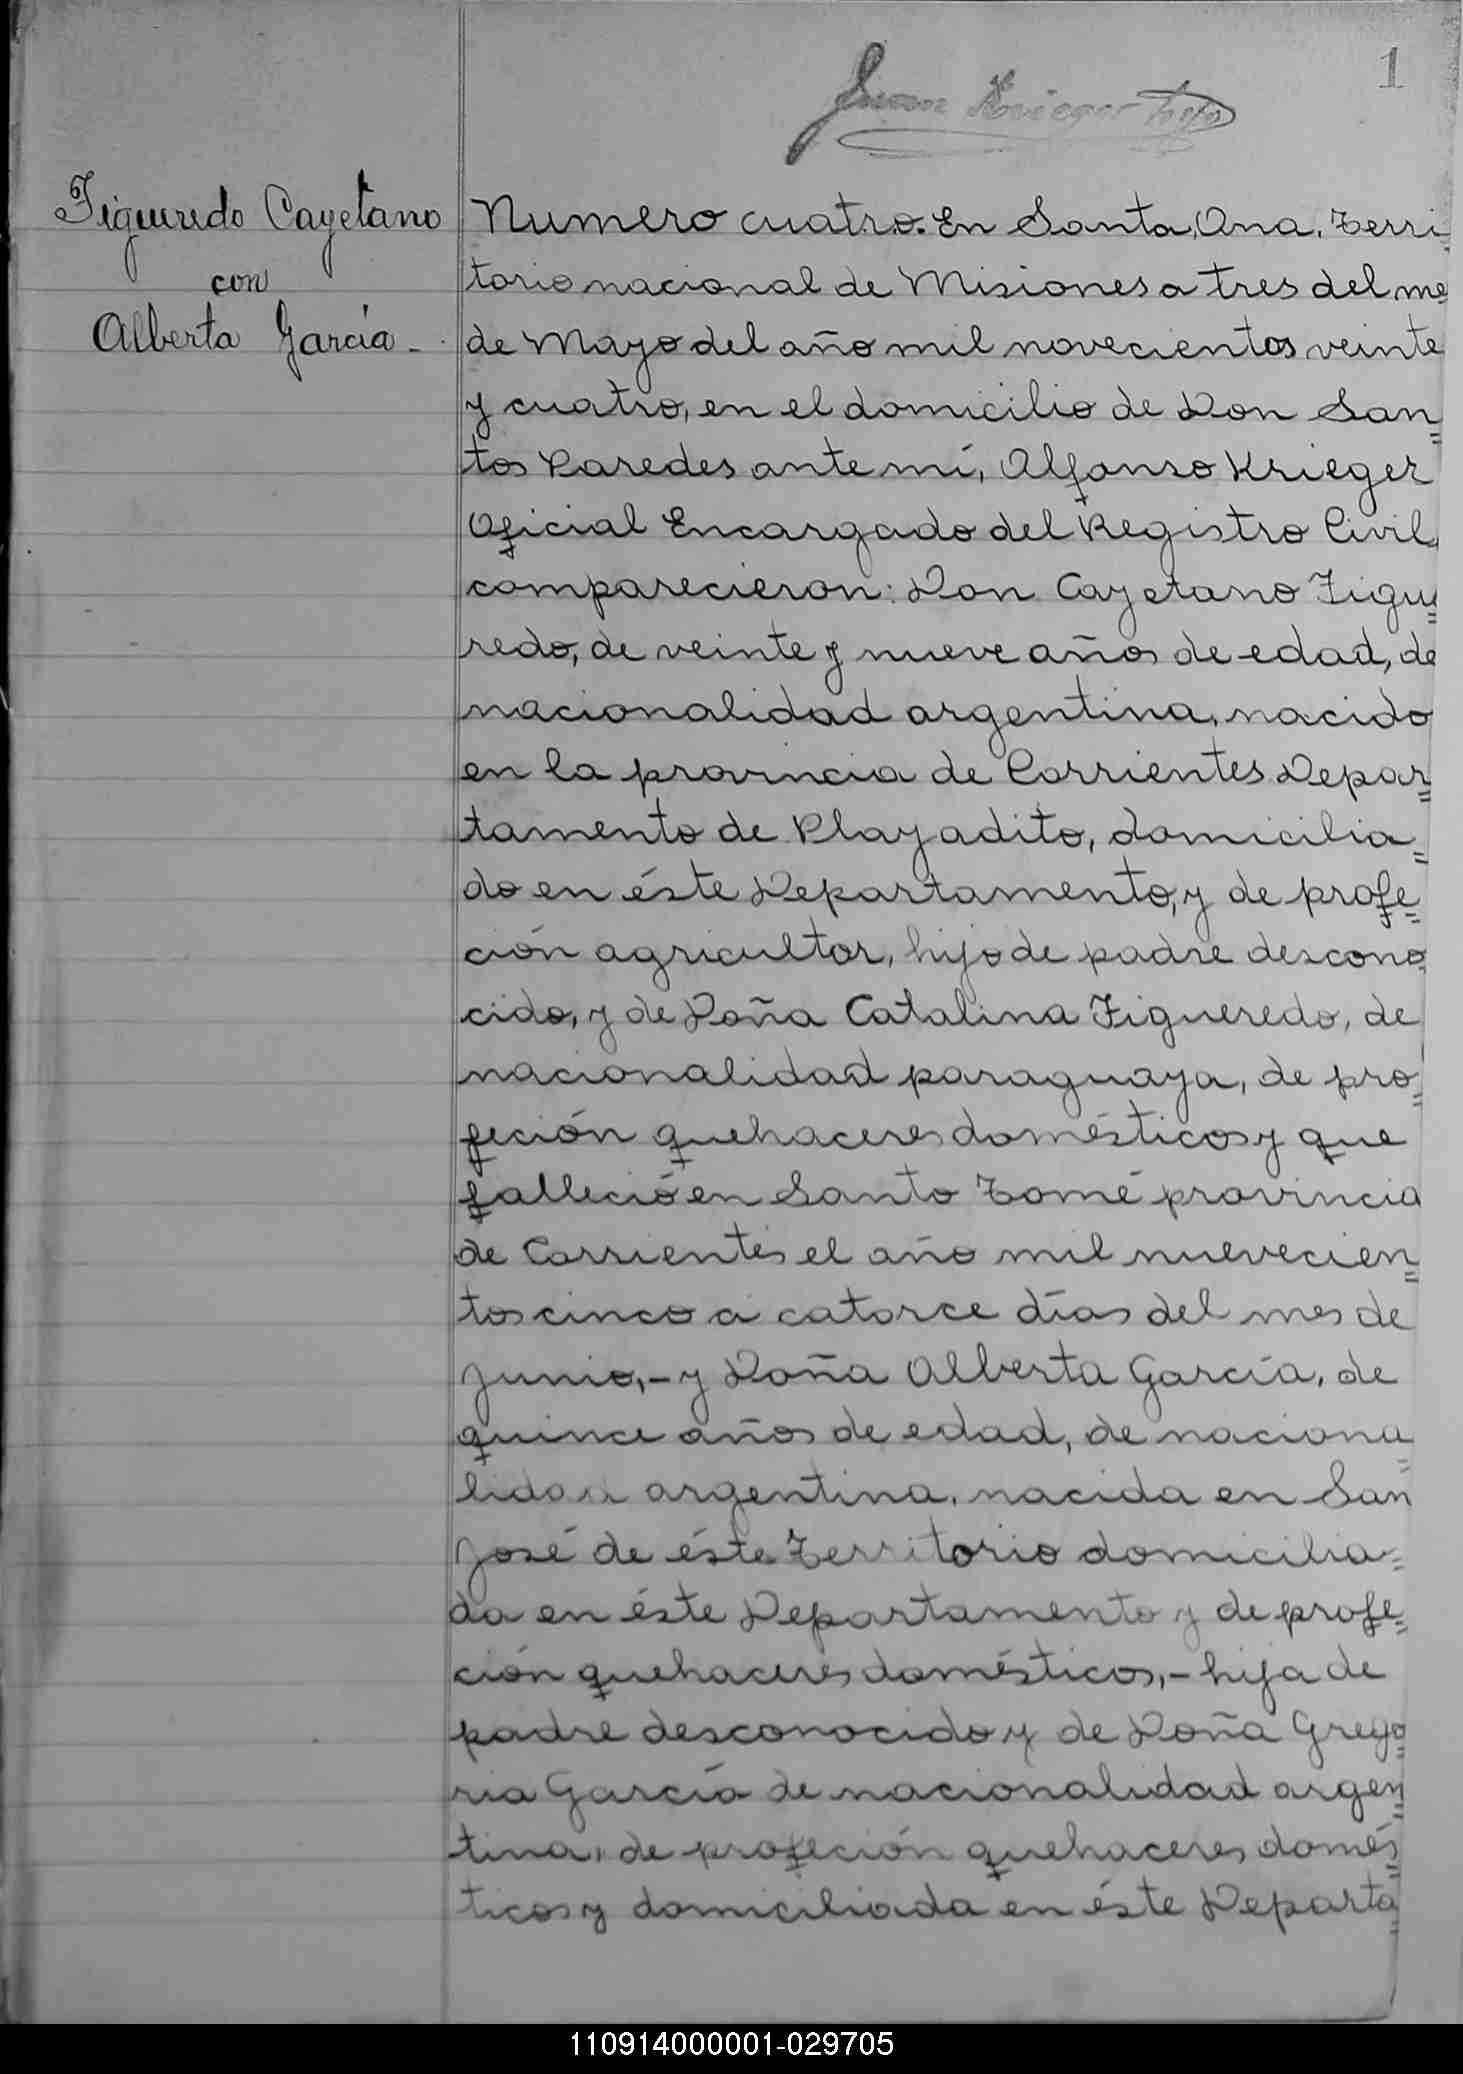 1
Juan Krieger hijo
Figueredo Cayetano
con
Alberta García -
Numero cuatro. En Santa Ana, Terri=
torio nacional de Misiones a tres del me
de Mayo del año mil novecientos veinte
y cuatro, en el domicilio de Don San=
tos Paredes ante mí, Alfonso Krieger
Oficial Encargado del Registro Civil,
comparecieron: Don Cayetano Figue=
redo, de veinte y nueve años de edad, de
nacionalidad argentina, nacido
en la provincia de Corrientes Depar=
tamento de Playadito, domicilia=
do en éste Departamento, y de profe=
ción agricultor, hijo de padre descono
cido, y de Doña Catalina Figueredo, de
nacionalidad paraguaya, de pro=
feción quehaceres domésticos y que
falleció en Santo Tomé provincia
de Corrientes el año mil nuevecien=
tos cinco a catorce días del mes de
Junio,- y Doña Alberta García, de
quince años de edad, de naciona=
lidad argentina, nacida en San
José de éste Territorio domicilia=
da en éste Departamento y de profe=
ción quehaceres domésticos,- hija de
padre desconocido y de Doña Grego=
ria García de nacionalidad argen=
tina, de profeción quehaceres domés=
ticos y domiciliada en éste Departa=
110914000001-029705